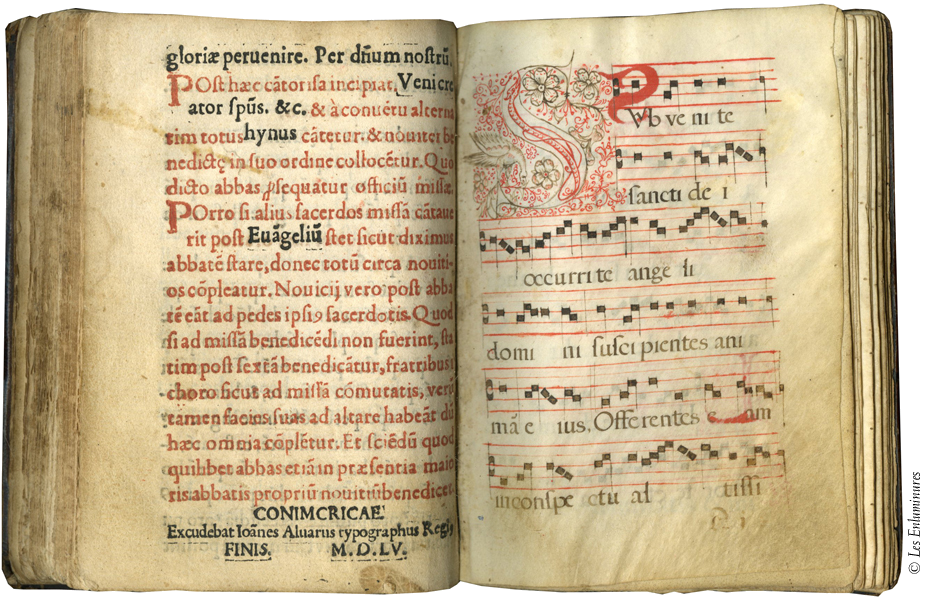 gloriæ peruenire. Per dñum nostrũ.
POst hæc cãtor ista incipiat, Veni cre
ator spũs. &c. & à conuẽtu alterna
tim totus hynus cãtetur. & nouitei be
nedictę in suo ordine collocẽtur. Quo
dicto abbas ꝓsequatur officiũ missæ.
POrro si alius sacerdos missã cãtaue
rit post Euãgeliũ stet sicut diximus
abbatẽ stare, donec totũ circa nouiti-
os cõpleatur. Nouicij vero post abba
tẽ eãt ad pedes ipsiꝰ sacerdotis. Quod
si ad missã benedicẽdi non fuerint, sta
tim post sextã benedicãtur, fratribus
choro sicut ad missã cõmutatis, verũ
tamen facies suas ad altare habeãt dũ
hæc omnia cõplẽtur. Et sciẽdũ quod
quilibet abbas etiã in præsentia maio
ris abbatis propriũ nouitiũ benedicet.
CONIMCRICAE
Excudebat Ioãnes Aluarus typographus Regis
FINIS. M.D.LV.
SVb ve ni te
sancti de i
occurri te ange li
domi ni susci pientes ani
mã e ius, Offe rentes e am
in conspe ctu al tissi
© Les Enluminures